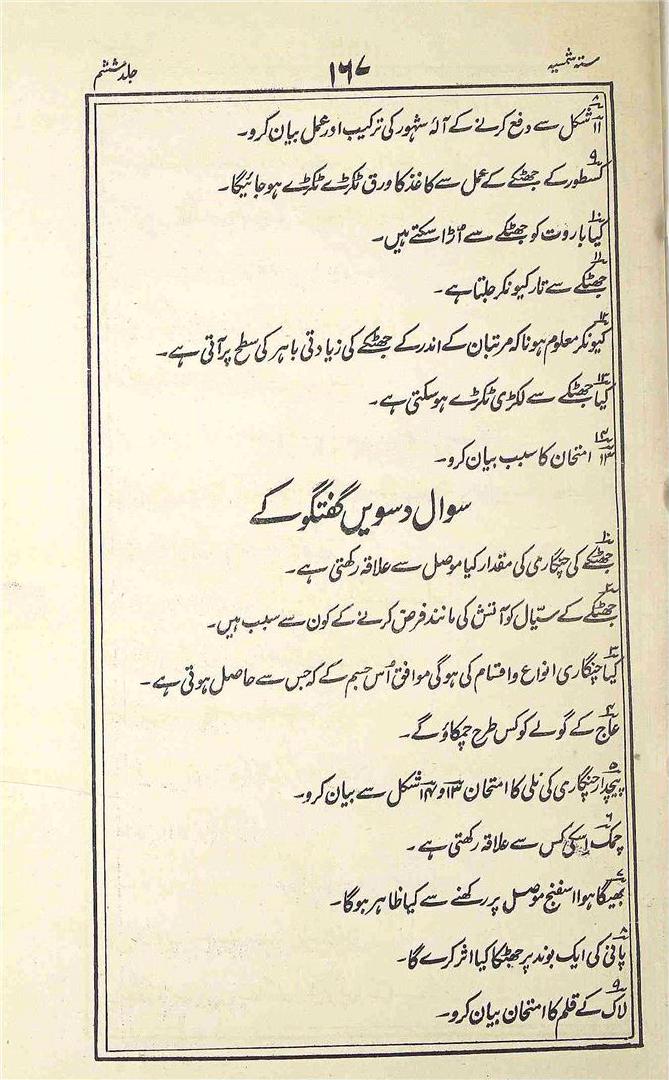 ستہ شمسیہ
۱۶۷
جلد ششم
۸ ۱۱ شکل سے دفع کرنے کے آلۂ مشہور کی ترکیب اور عمل بیان کرو۔
۹ کسطور کے جھٹکے کے عمل سے کاغذ کا ورق ٹکڑے ٹکڑے ہو جائیگا۔
۱۰ کیا باروت کو جھٹکے سے اُڑا سکتے ہیں۔
۱۱ جھٹکے سے تار کیونکر جلتا ہے۔
۱۲ کیونکر معلوم ہوتا کہ مرتبان کے اندر کے جھٹکے کی زیادتی باہر کی سطح پر آتی ہے۔
۱۳ کیا جھٹکے سے لکڑی ٹکڑے ہو سکتی ہے۔
۱۴ ۱۳ امتحان کا سبب بیان کرو۔
سوال دسویں گفتگو کے
۱ جھٹکے کی چنگاری کی مقدار کیا موصل سے علاقہ رکھتی ہے۔
۲ جھٹکے کے سیّال کو آتش کی مانند فرض کرنے کے کون سے سبب ہیں۔
۳ کیا چنگاری انواع و اقسام کی ہوگی موافق اُس جسم کے کہ جس سے حاصل ہوتی ہے۔
۴ عاج کے گولے کو کس طرح چمکاؤ گے۔
۵ پیچدار چنگاری کی نلی کا امتحان ۱۳ و ۱۴ شکل سے بیان کرو۔
۶ چمک اسکی کس سے علاقہ رکھتی ہے۔
۷ بھیگا ہوا اسفنج موصل پر رکھنے سے کیا ظاہر ہوگا۔
۸ پانی کی ایک بوند پر جھٹکا کیا اثر کرے گا۔
۹ لاک کے قلم کا امتحان بیان کرو۔